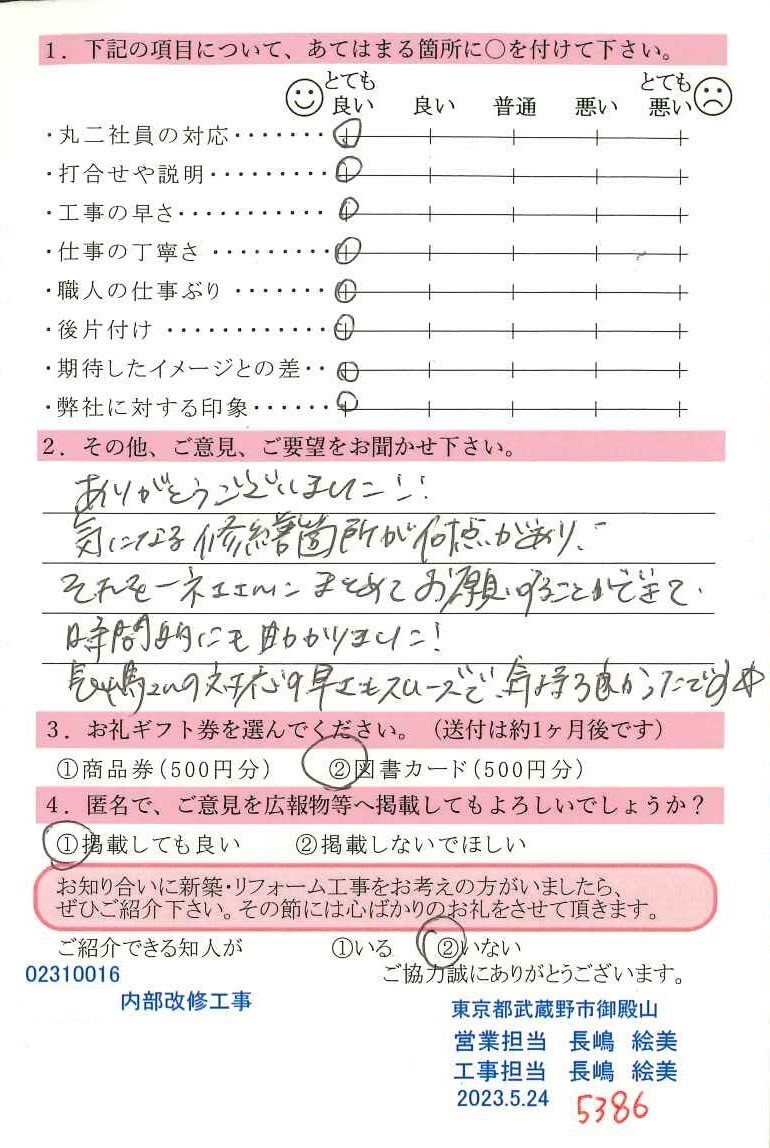 1．下記の項目について、あてはまる箇所に○を付けて下さい。
とても良い 良い 普通 悪い とても悪い
・丸二社員の対応・・・・・・・
・打合せや説明・・・・・・・・・
・工事の早さ・・・・・・・・・・・
・仕事の丁寧さ・・・・・・・・・
・職人の仕事ぶり・・・・・・・
・後片付け・・・・・・・・・・・・
・期待したイメージとの差・・
・弊社に対する印象・・・・・・
2．その他、ご意見、ご要望をお聞かせ下さい。
ありがとうございました!!
気になる修繕箇所が何点かあり、
それを一気にまとめてお願いすることができて、
時間的にも助かりました!
長嶋さんの対応の早さもスムーズで、気持ち良かったです
3．お礼ギフト券を選んでください。（送付は約1ヶ月後です）
①商品券（500円分） ②図書カード（500円分）
4．匿名で、ご意見を広報物等へ掲載してもよろしいでしょうか？
①掲載しても良い ②掲載しないでほしい
お知り合いに新築・リフォーム工事をお考えの方がいましたら、
ぜひご紹介下さい。その節には心ばかりのお礼をさせて頂きます。
ご紹介できる知人が ①いる ②いない
ご協力誠にありがとうございます。
02310016
内部改修工事
東京都武蔵野市御殿山
営業担当 長嶋 絵美
工事担当 長嶋 絵美
2023.5.24
5386